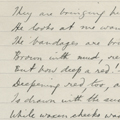 They are bringing h
He looks at me wan
The bandages are bro
Brown with mud, re
But how deep a red!
Deepening red too, a
Is drawn with the
While waxen cheeks wax